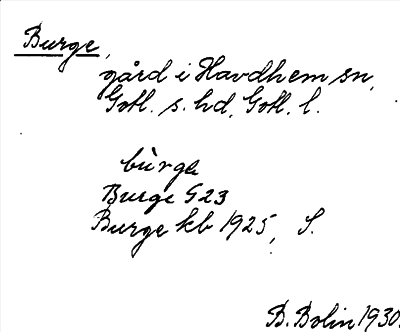 Burge,
gård i Havdhem sn,
Gotl. s. hd, Gotl. l.
bùrge
Burge G23
Burge kb 1925, S.
B. Bolin 1930.